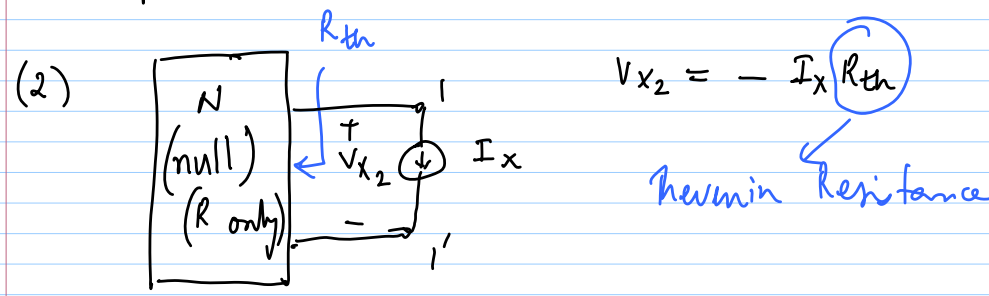 R_th
(2)
N
(null)
(R only)
1
+
V_x2
-
1'
I_x
V_x2 = - I_x R_th
Thevenin Resistance